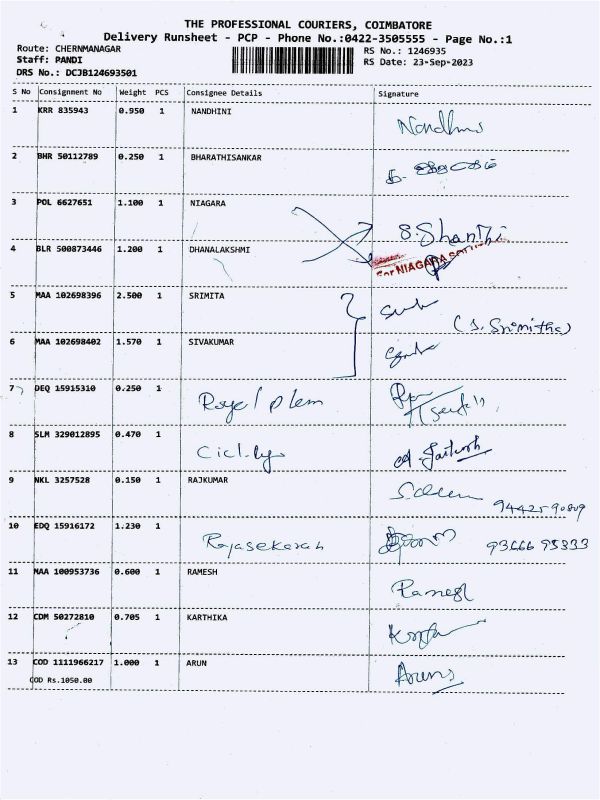 THE PROFESSIONAL COURIERS, COIMBATORE
Delivery Runsheet - PCP - Phone No.:0422-3505555 - Page No.:1
Route: CHERNMANAGAR RS No.: 1246935
Staff: PANDI RS Date: 23-Sep-2023
DRS No.: DCJB124693501
S No Consignment No Weight PCS Consignee Details Signature
1 KRR 835943 0.950 1 NANDHINI
2 BHR 50112789 0.250 1 BHARATHISANKAR
3 POL 6627651 1.100 1 NIAGARA S. Shanthi
4 BLR 500873446 1.200 1 DHANALAKSHMI For NIAGARA
5 MAA 102698396 2.500 1 SRIMITA
(S. Srimitha)
6 MAA 102698402 1.570 1 SIVAKUMAR
7 DEQ 15915310 0.250 1 Royal plem
8 SLM 329012895 0.470 1
9 NKL 3257528 0.150 1 RAJKUMAR
9442590809
10 EDQ 15916172 1.230 1 Rajasekarah 93666 95333
11 MAA 100953736 0.600 1 RAMESH Ramesh
12 CDM 50272810 0.705 1 KARTHIKA
13 COD 1111966217 1.000 1 ARUN Arun
COD Rs.1050.00